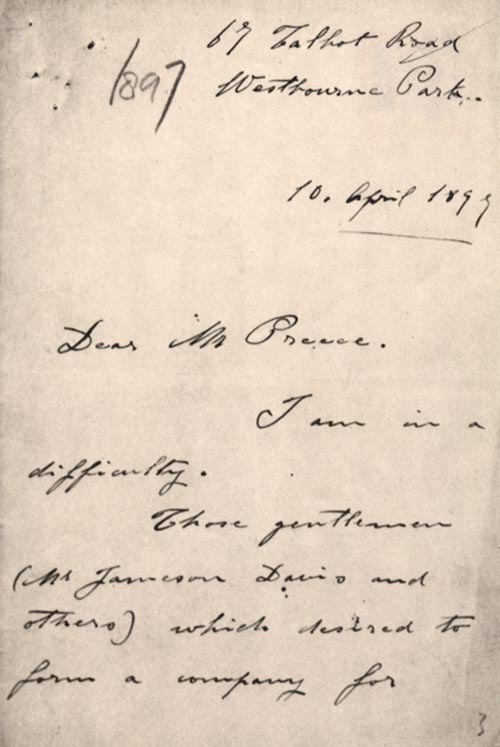 67 Talbot Road
1897
Westbourne Park.
10. April 1897
Dear Mr Preece.
I am in a
difficulty.
Those gentlemen
(Mr Jameson Davis and
others) which desired to
form a company for
3